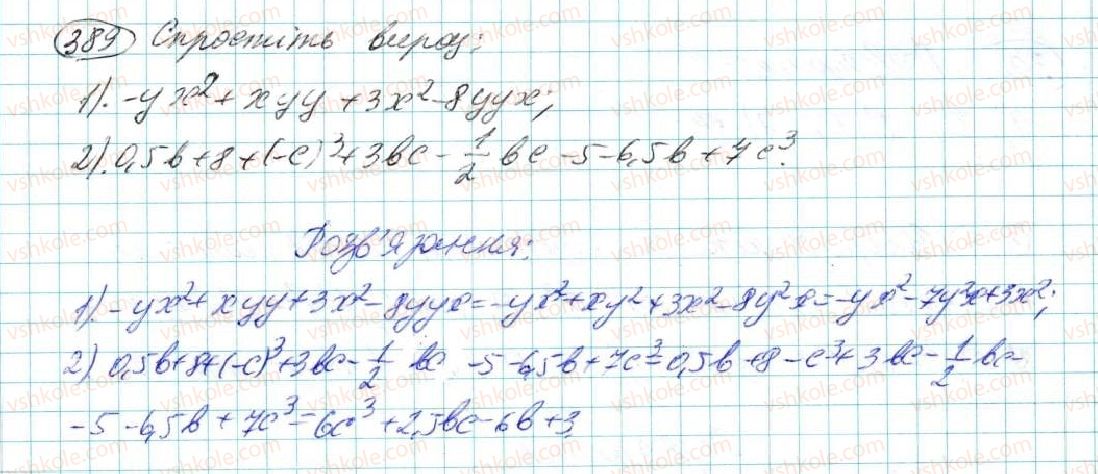 389 Спростіть вираз:
1). -yx²+xyy+3x²-8yyx;
2). 0,5b+8+(-c)³+3bc-1/2bc-5-6,5b+7c³.
Розв'язання:
1). -yx²+xyy+3x²-8yyx=-yx²+xy²+3x²-8y²x=-yx²-7y²x+3x²;
2) 0,5b+8+(-c)³+3bc-1/2 bc -5-6,5b+7c³=0,5b+8-c³+3bc-1/2bc-
-5-6,5b+7c³=6c³+2,5bc-6b+3